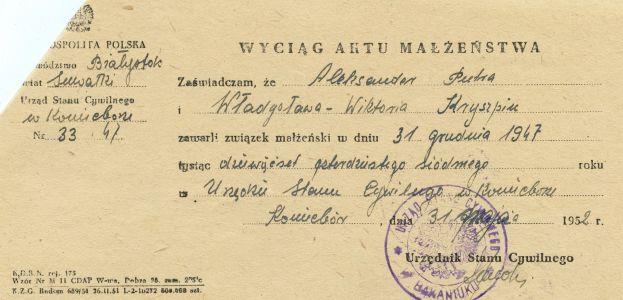 OSPOLITA POLSKA
wództwo Białystok
wiat Suwałki
Urząd Stanu Cywilnego
w Koniecborze
Nr 33 47
WYCIĄG AKTU MAŁŻEŃSTWA
Zaświadczam, że Aleksander Putra
i Władysława-Wiktoria Kryszpin
zawarli związek małżeński w dniu 31 grudnia 1947
tysiąc dziewięćset czterdziestego siódmego roku
w Urzędzie Stanu Cywilnego w Koniecborze
Koniecbór, dnia 31 maja 1952
URZĄD STANU CYWILNEGO
Urzędnik Stanu Cywilnego
K.D.B.N. rej. 175
Wzór Nr M 11 CDAP W-wa,
K.Z.G. Radom 689/51 26.11.51 L-2-10272